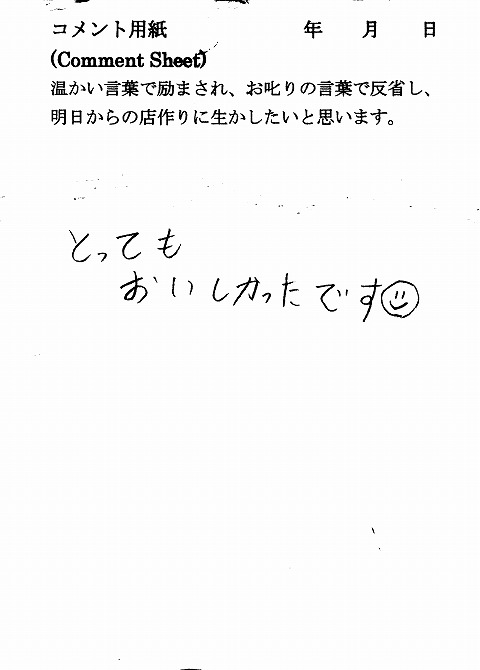 コメント用紙 年 月 日
(Comment Sheet)
温かい言葉で励まされ、お叱りの言葉で反省し、
明日からの店作りに生かしたいと思います。
とっても
おいしかったです